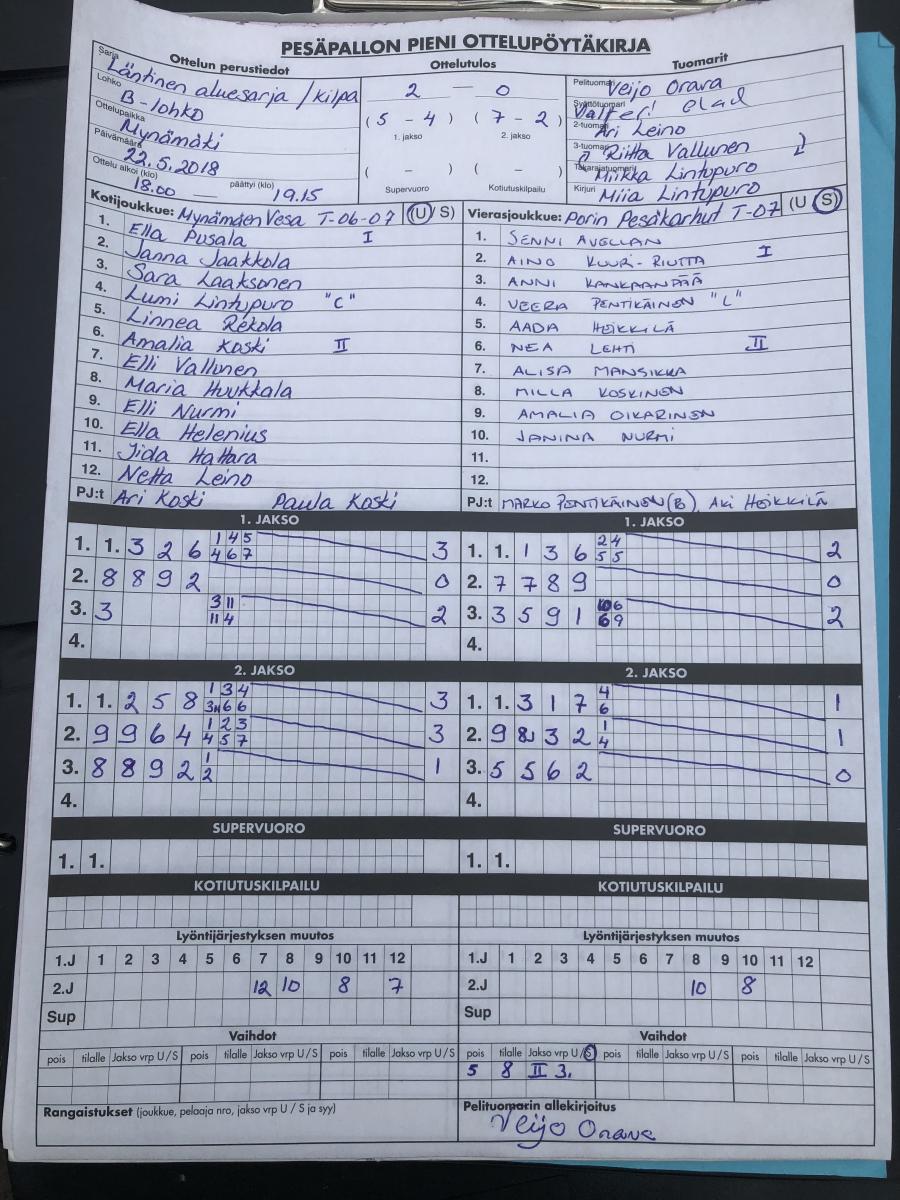 PESÄPALLON PIENI OTTELUPÖYTÄKIRJA
Ottelun perustiedot
Sarja Läntinen aluesarja / kilpa
Lohko B-lohko
Ottelupaikka Mynämäki
Päivämäärä 22.5.2018
Ottelu alkoi (klo) 18.00 päättyi (klo) 19.15
Ottelutulos
2 — 0
(5 - 4) (7 - 2)
1. jakso 2. jakso
( - ) ( - )
Supervuoro Kotiutuskilpailu
Tuomarit
Pelituomari Veijo Orava
Syöttötuomari Valtteri
2-tuomari Ari Leino
3-tuomari Riitta Vallunen
Takarajatuomari Miikka Lintupuro
Kirjuri Miia Lintupuro
Kotijoukkue: Mynämäen Vesa T-06-07 (U / S)
1. Ella Pusala I
2. Janna Jaakkola
3. Sara Laaksonen
4. Lumi Lintupuro "C"
5. Linnea Rekola
6. Amalia Koski II
7. Elli Vallunen
8. Maria Huukkala
9. Elli Nurmi
10. Ella Helenius
11. Iida Hattara
12. Netta Leino
PJ:t Ari Koski Paula Koski
Vierasjoukkue: Porin Pesäkarhut T-07 (U / S)
1. SENNI AVELLAN
2. AINO KUURI-RIUTTA I
3. ANNI KANKAANPÄÄ
4. VEERA PENTIKÄINEN "L"
5. AADA HEIKKILÄ
6. NEA LEHTI II
7. ALISA MANSIKKA
8. MILLA KOSKINEN
9. AMALIA OIKARINEN
10. JANINA NURMI
11.
12.
PJ:t MARKO PENTIKÄINEN (B), AKI HEIKKILÄ
1. JAKSO
1. 1. 3 2 6 1 4 5 4 6 7 3
2. 8 8 9 2 0
3. 3 3 11 11 4 2
4.
1. JAKSO
1. 1. 1 3 6 2 4 5 5 2
2. 7 7 8 9 0
3. 3 5 9 1 10 6 6 9 2
4.
2. JAKSO
1. 1. 2 5 8 1 3 4 3 4 6 6 3
2. 9 9 6 4 1 2 3 4 5 7 3
3. 8 8 9 2 1 2 1
4.
2. JAKSO
1. 1. 3 1 7 4 6 1
2. 9 8 3 2 1 4 1
3. 5 5 6 2 0
4.
SUPERVUORO
1. 1.
SUPERVUORO
1. 1.
KOTIUTUSKILPAILU
KOTIUTUSKILPAILU
Lyöntijärjestyksen muutos
1.J 1 2 3 4 5 6 7 8 9 10 11 12
2.J 12 10 8 7
Sup
Lyöntijärjestyksen muutos
1.J 1 2 3 4 5 6 7 8 9 10 11 12
2.J 10 8
Sup
Vaihdot
pois tilalle Jakso vrp U/S pois tilalle Jakso vrp U/S pois tilalle Jakso vrp U/S
Vaihdot
pois tilalle Jakso vrp U/S pois tilalle Jakso vrp U/S pois tilalle Jakso vrp U/S
5 8 II 3.
Rangaistukset (joukkue, pelaaja nro, jakso vrp U / S ja syy)
Pelituomarin allekirjoitus
Veijo Orava